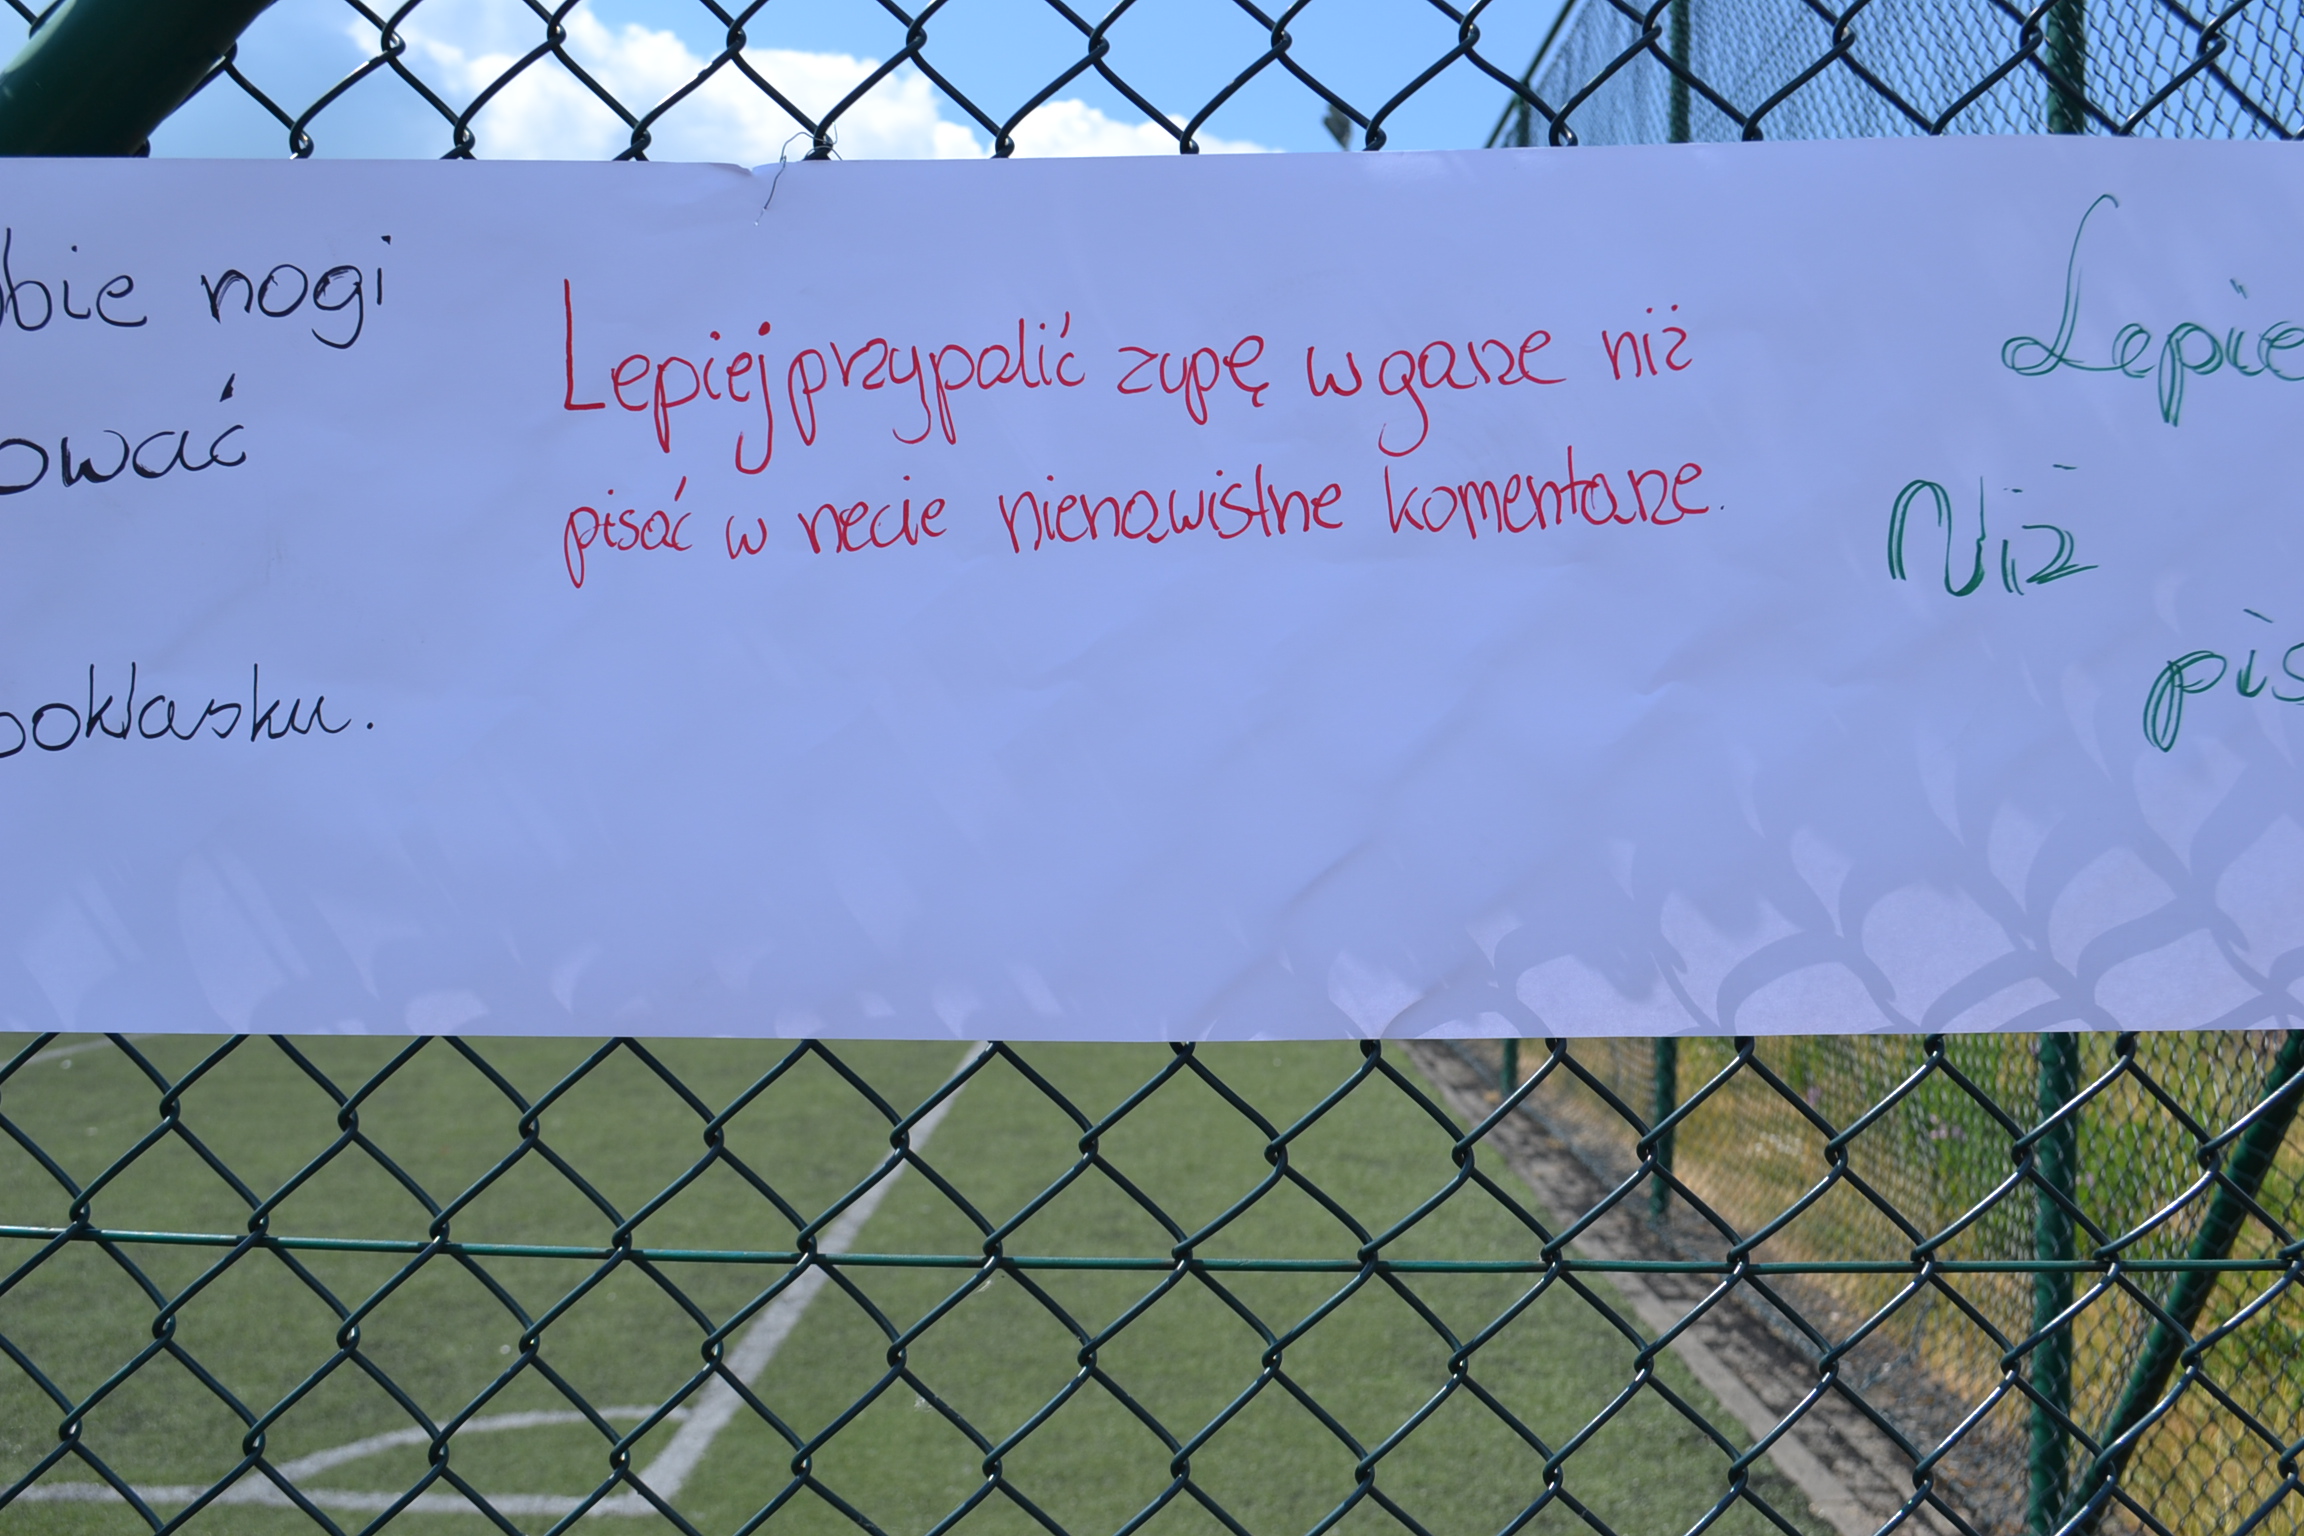 bie nogi
ować
poklasku.
Lepiej przypalić zupę w garze niż
pisać w necie nienawistne komentarze.
Lepie
Niż
pis